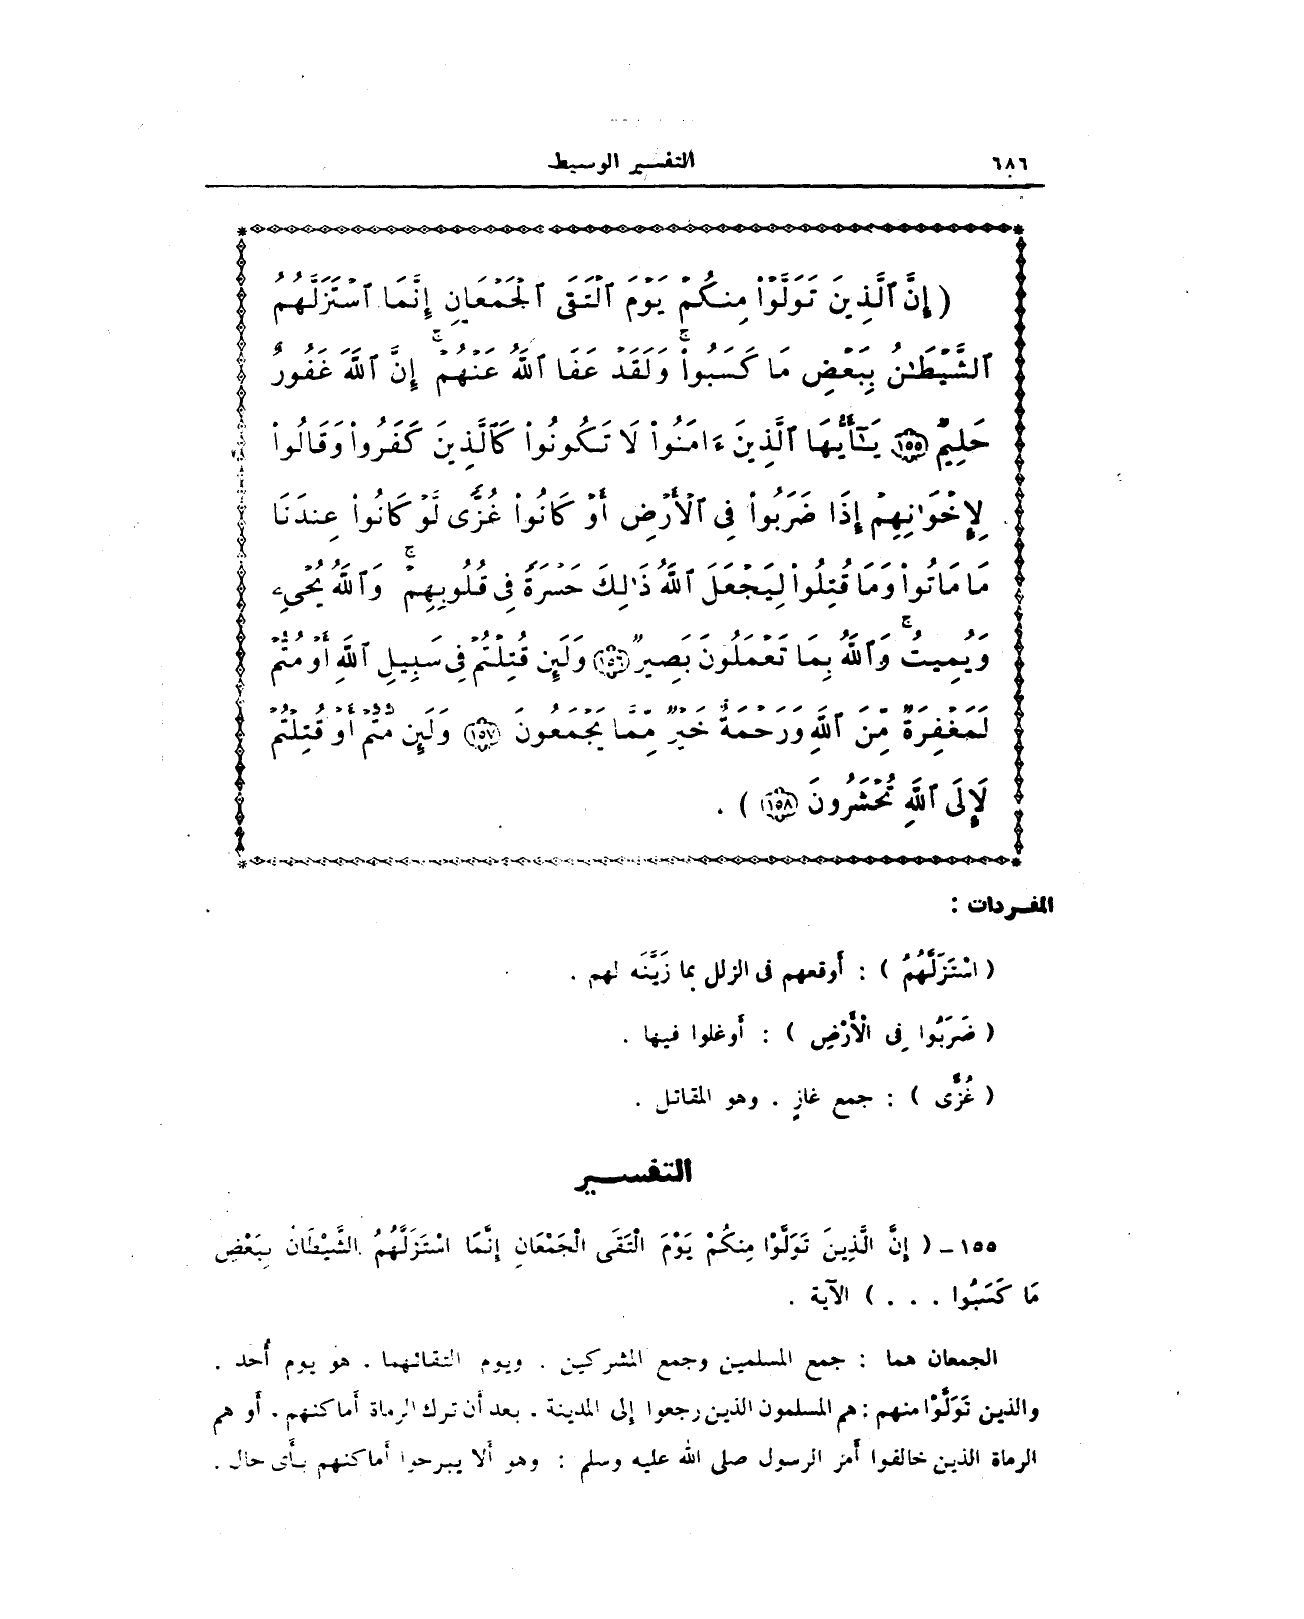 ٦٨٦
التفسير الوسيط
( إِنَّ ٱلَّذِينَ تَوَلَّوْا۟ مِنكُمْ يَوْمَ ٱلْتَقَى ٱلْجَمْعَانِ إِنَّمَا ٱسْتَزَلَّهُمُ
ٱلشَّيْطَـٰنُ بِبَعْضِ مَا كَسَبُوا۟ ۖ وَلَقَدْ عَفَا ٱللَّهُ عَنْهُمْ ۚ إِنَّ ٱللَّهَ غَفُورٌ
حَلِيمٌ ١٥٥ يَـٰٓأَيُّهَا ٱلَّذِينَ ءَامَنُوا۟ لَا تَكُونُوا۟ كَٱلَّذِينَ كَفَرُوا۟ وَقَالُوا۟
لِإِخْوَٰنِهِمْ إِذَا ضَرَبُوا۟ فِى ٱلْأَرْضِ أَوْ كَانُوا۟ غُزًّى لَّوْ كَانُوا۟ عِندَنَا
مَا مَاتُوا۟ وَمَا قُتِلُوا۟ لِيَجْعَلَ ٱللَّهُ ذَٰلِكَ حَسْرَةً فِى قُلُوبِهِمْ ۗ وَٱللَّهُ يُحْىِۦ
وَيُمِيتُ ۗ وَٱللَّهُ بِمَا تَعْمَلُونَ بَصِيرٌ ١٥٦ وَلَئِن قُتِلْتُمْ فِى سَبِيلِ ٱللَّهِ أَوْ مُتُّمْ
لَمَغْفِرَةٌ مِّنَ ٱللَّهِ وَرَحْمَةٌ خَيْرٌ مِّمَّا يَجْمَعُونَ ١٥٧ وَلَئِن مُّتُّمْ أَوْ قُتِلْتُمْ
لَإِلَى ٱللَّهِ تُحْشَرُونَ ١٥٨ ) .
المفردات :
( اسْتَزَلَّهُمُ ) : أَوقعهم فى الزلل بما زَيَّنَه لهم .
( ضَرَبُوا فِى الْأَرْضِ ) : أَوغلوا فيها .
( غُزًّى ) : جمع غازٍ . وهو المقاتل .
التفسير
١٥٥ – ( إِنَّ الَّذِينَ تَوَلَّوْا مِنكُمْ يَوْمَ الْتَقَى الْجَمْعَانِ إِنَّمَا اسْتَزَلَّهُمُ الشَّيْطَانُ بِبَعْضِ
مَا كَسَبُوا . . . ) الآية .
الجمعان هما : جمع المسلمين وجمع المشركين . ويوم التقائهما . هو يوم أُحد .
والذين تَوَلَّوْا منهم : هم المسلمون الذين رجعوا إلى المدينة . بعد أن ترك الرماة أَماكنهم . أَو هم
الرماة الذين خالفوا أَمر الرسول صلى الله عليه وسلم : وهو أَلا يبرحوا أَماكنهم بأَى حال .